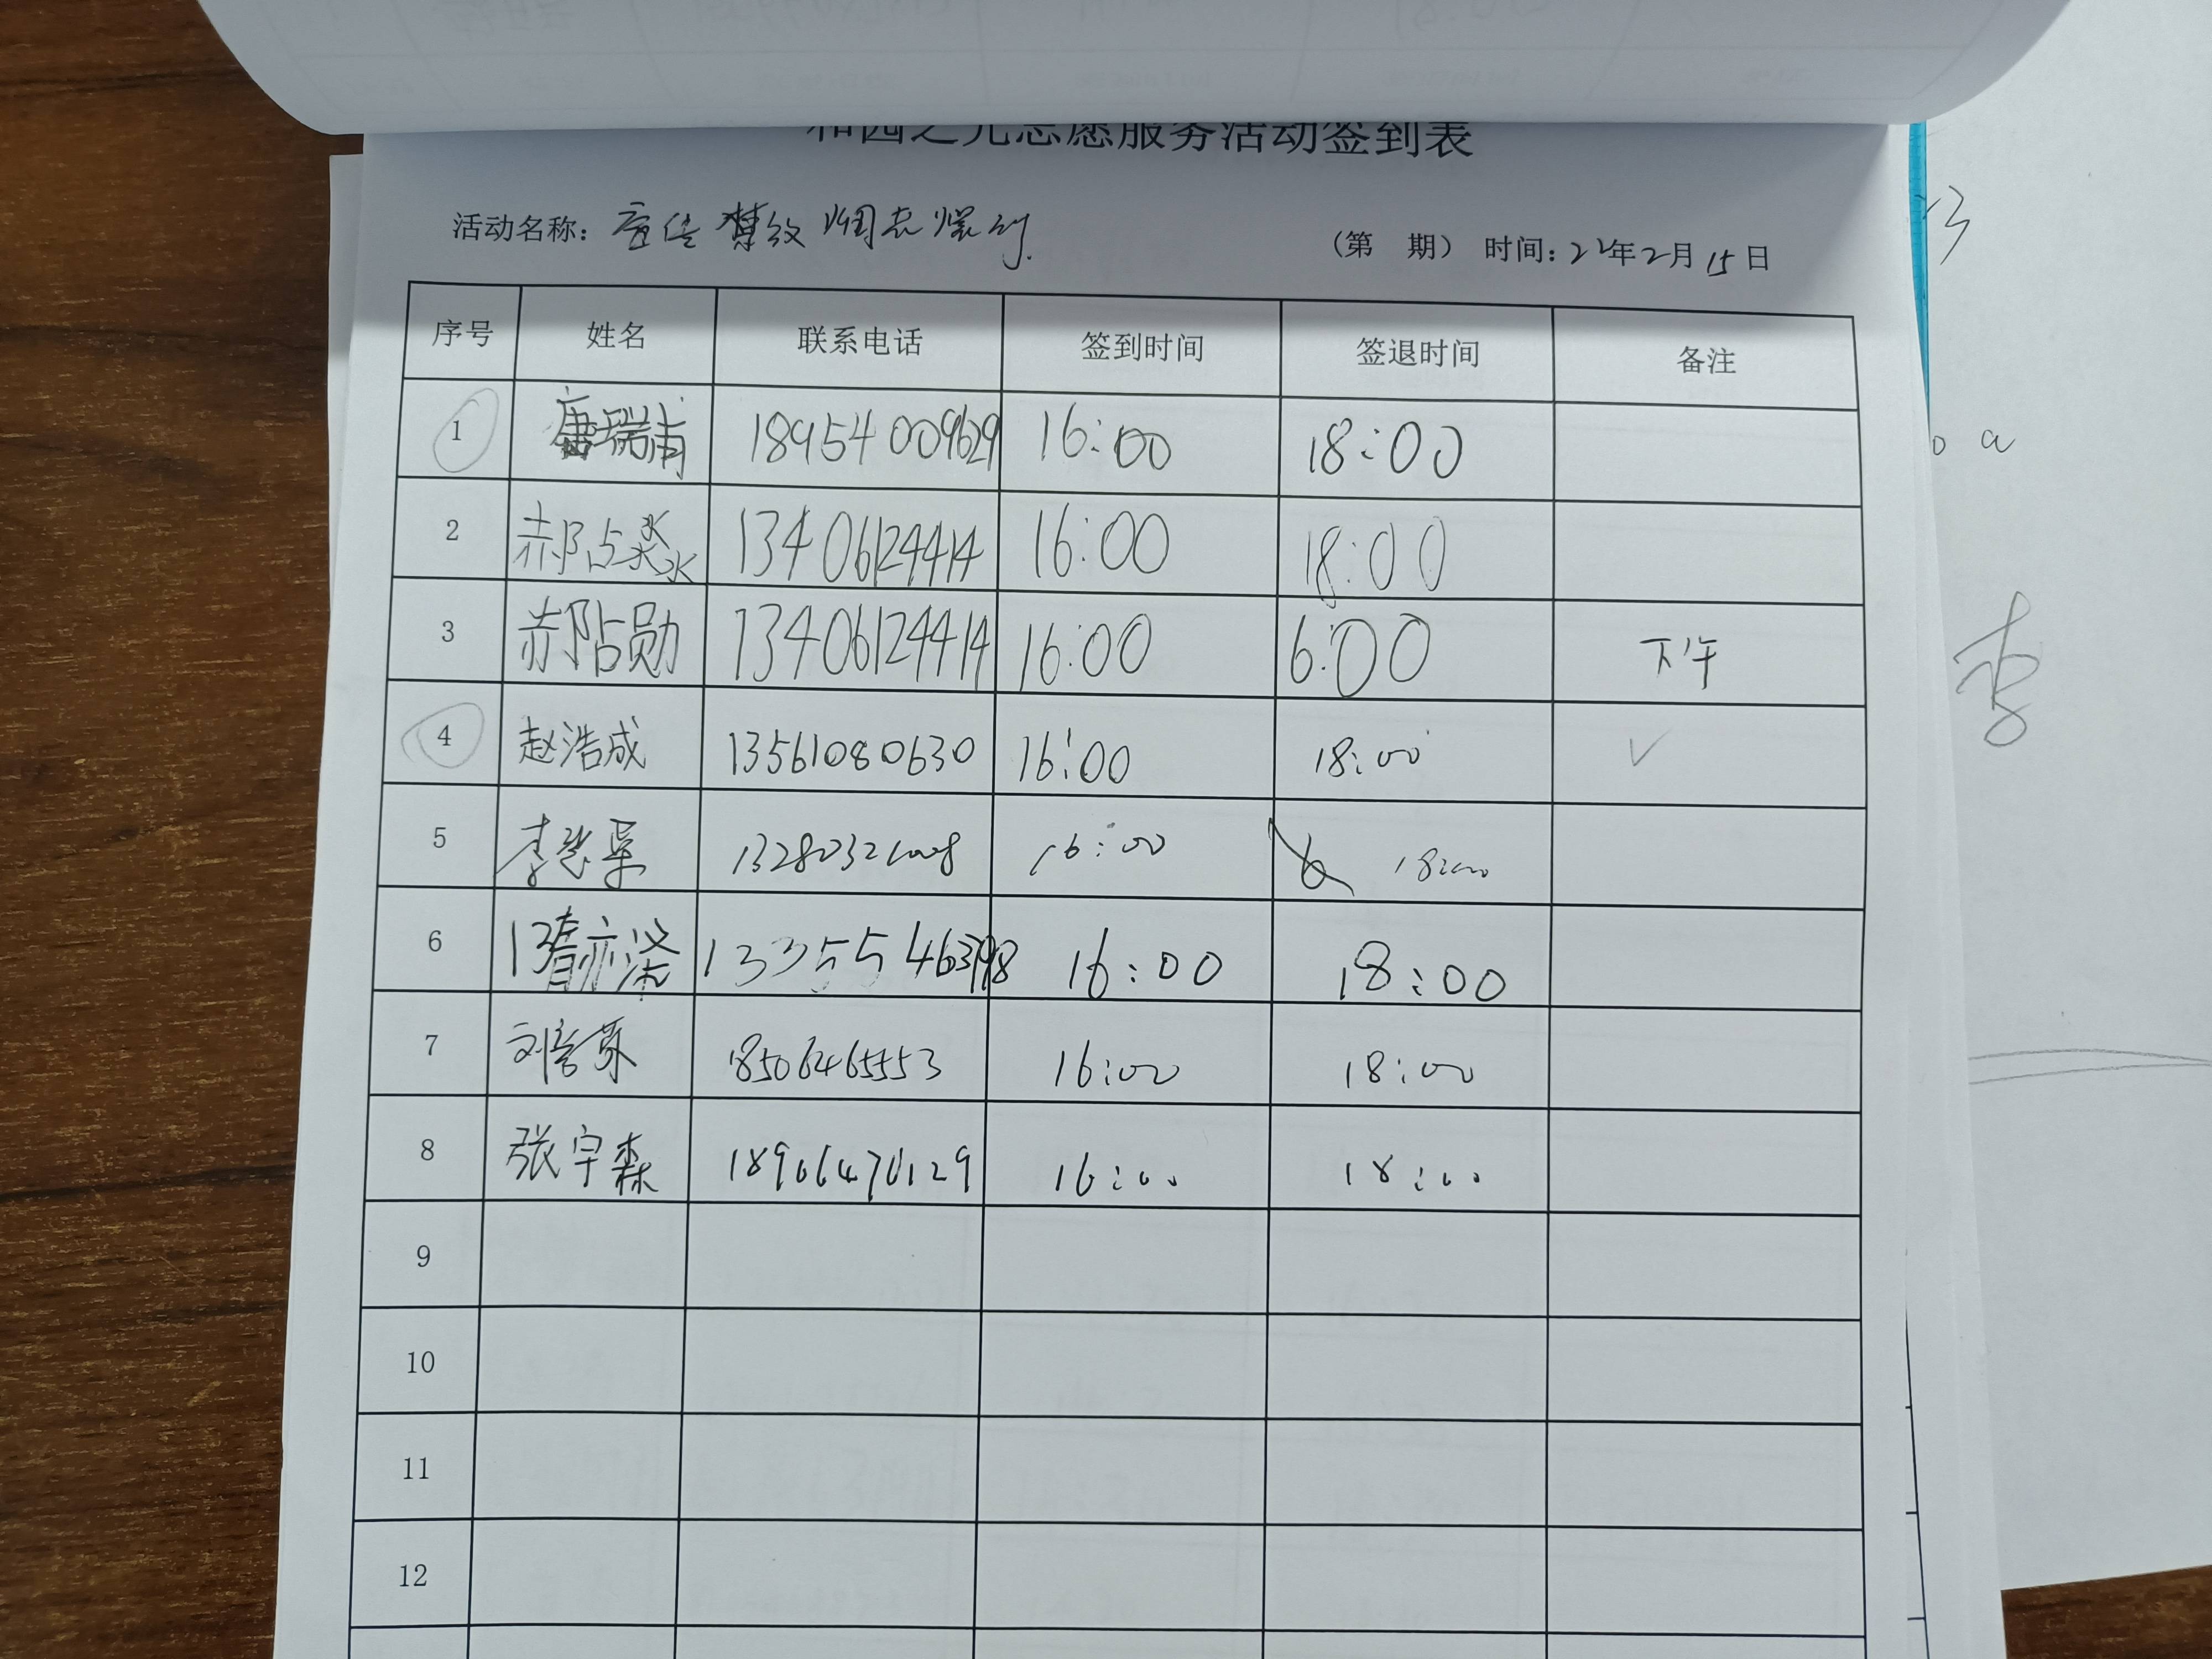 和园之光志愿服务活动签到表
活动名称: 宣传禁放烟花爆竹 (第 期) 时间:22年2月15日
序号 姓名 联系电话 签到时间 签退时间 备注
1 唐瑞甫 18954009629 16:00 18:00
2 郝占淼 13406124414 16:00 18:00
3 郝占勋 13406124414 16:00 6:00 下午
4 赵浩成 13561080630 16:00 18:00 ✓
5 16:00 18:00
6 16:00 18:00
7 16:00 18:00
8 张宇森 18906470129 16:00 18:00
9
10
11
12